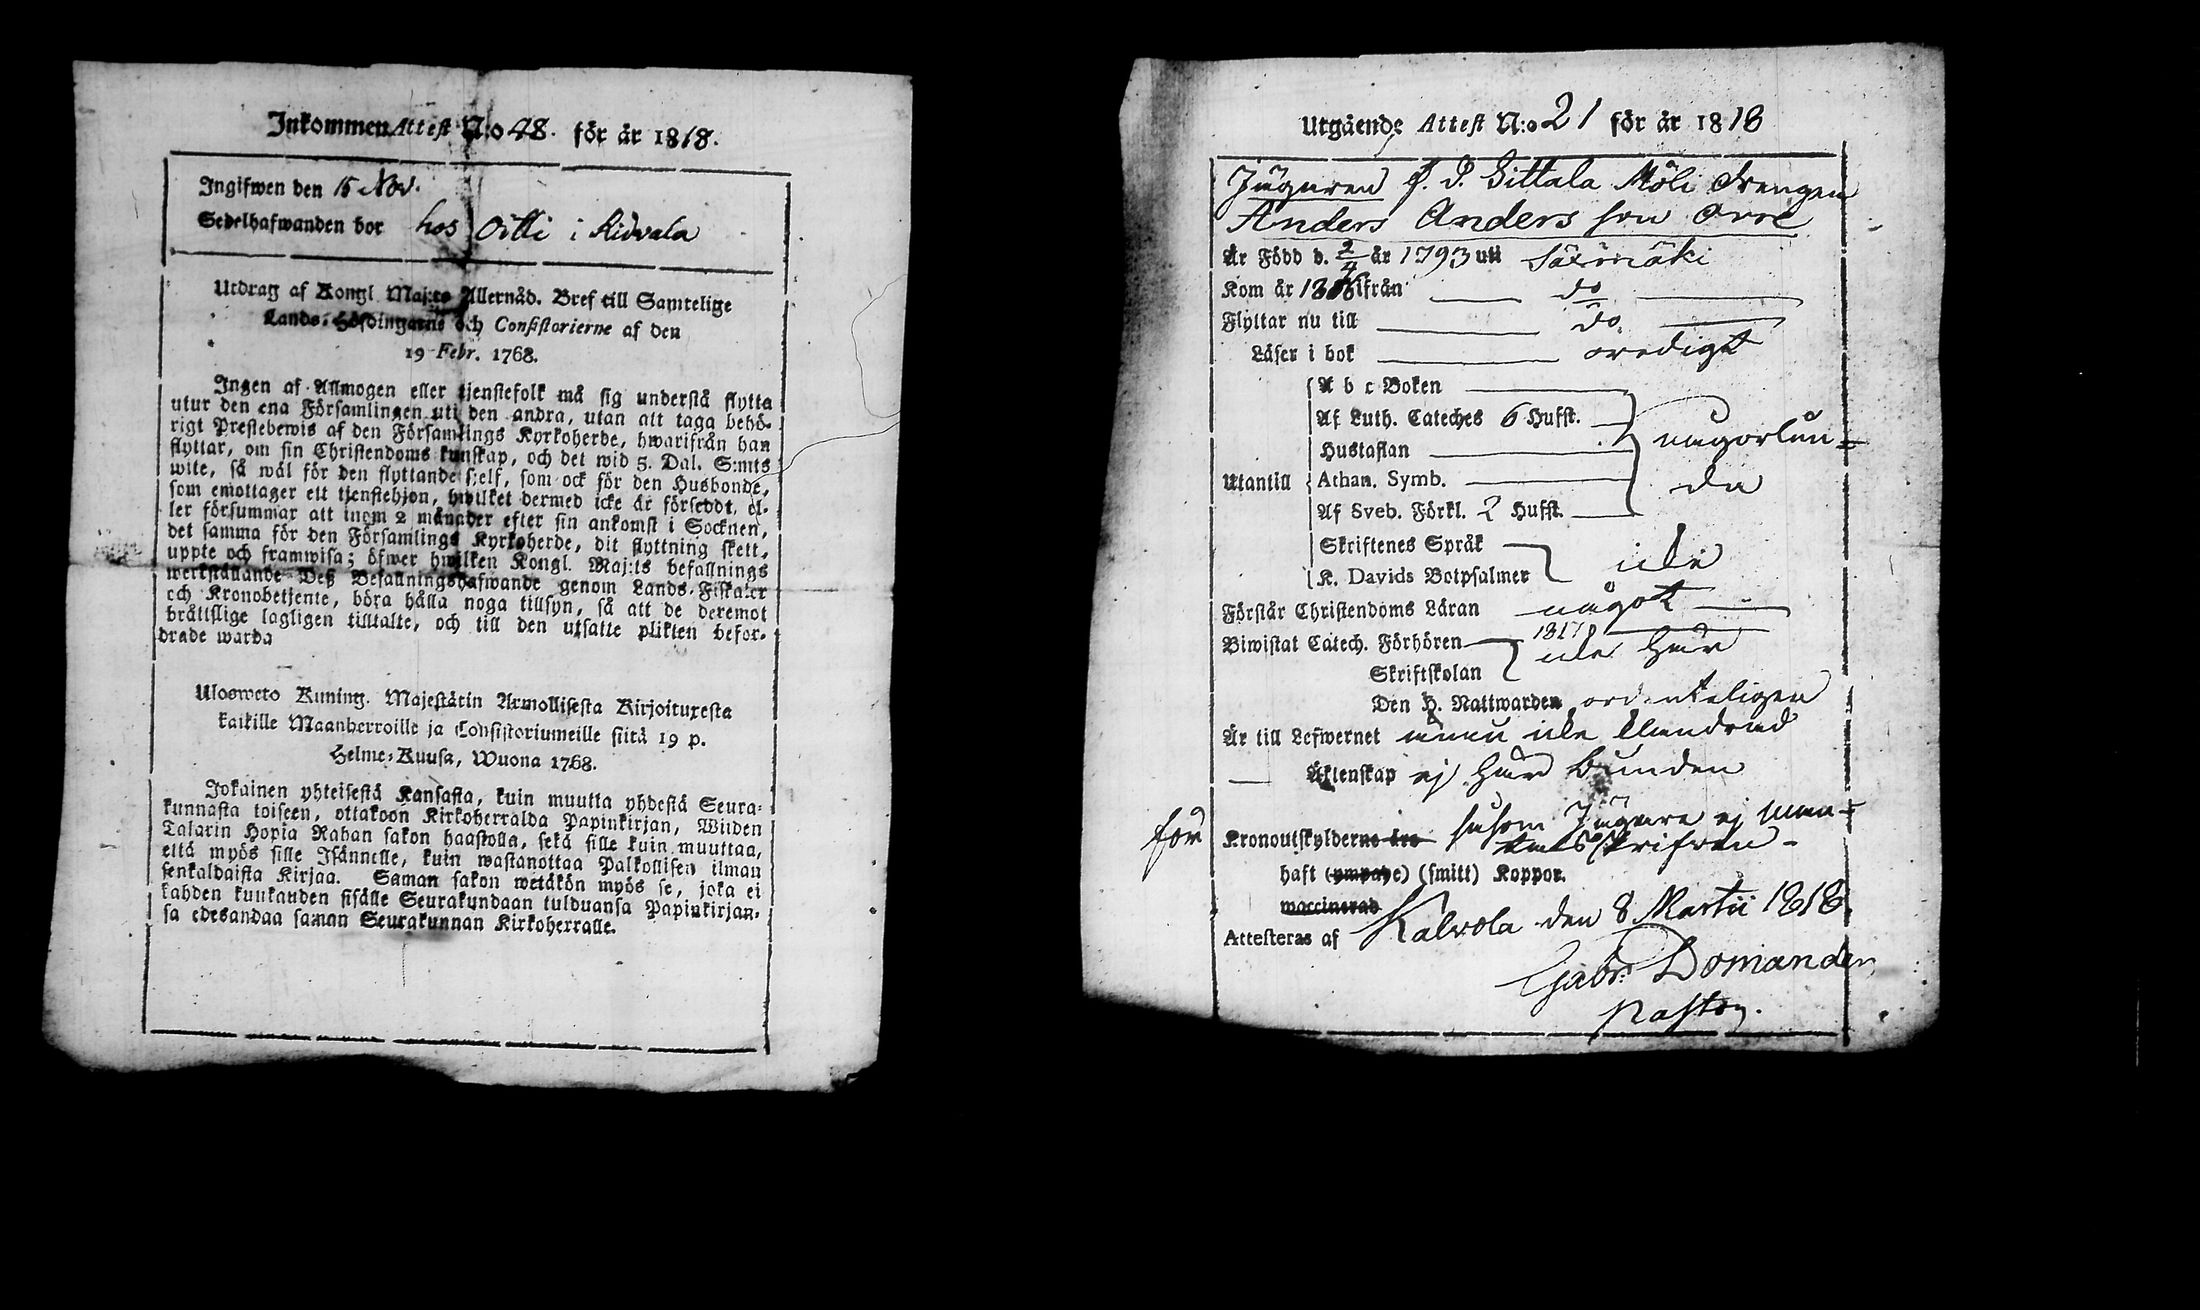 Inkommen Attest N:o 48. för år 1818.
Ingifwen den 15 Nov.
Sedelhafwanden bor hos Oitti i Ridvala
Utdrag af Kongl Maj:ts Allernåd. Bref till Samtelige
Lands-Höfdingarne och Consistorierne af den
19 Febr. 1768.
Ingen af Allmogen eller tjenstefolk må sig understå flytta
utur den ena Församlingen uti den andra, utan att taga behö-
rigt Prestebewis af den Församlings Kyrkoherde, hwarifrån han
flyttar, om sin Christendoms kunskap, och det wid 5. Dal. S:mts
wite, så wäl för den flyttande sjelf, som ock för den Husbonde,
som emottager ett tjenstehjon, hwilket dermed icke är försedt, el-
ler försummar att inom 2 månader efter sin ankomst i Socknen,
det samma för den Församlings Kyrkoherde, dit flyttning skett,
uppte och framwisa; öfwer hwilken Kongl. Maj:ts befallnings
werkställande Deß Befallningshafwande genom Lands-Fiskaler
och Kronobetjente, böra hålla noga tillsyn, så att de deremot
bråttslige lagligen tilltalte, och till den utsatte plikten befor-
drade warda
Ulosweto Kuning. Majestätin Armollisesta Kirjoituxesta
kaikille Maanherroille ja Consistoriumeille siitä 19 p.
Helme-Kuusa, Wuona 1768.
Jokainen yhteisestä Kansasta, kuin muutta yhdestä Seura-
kunnasta toiseen, ottakoon Kirkoherralda Papinkirjan, Wiiden
Talarin Hopia Rahan sakon haastolla, sekä sille kuin muuttaa,
että myös sille Isännelle, kuin wastanottaa Palkollisen ilman
senkaldaista Kirjaa. Saman sakon wetäkön myös se, joka ei
kahden kuukauden sisälle Seurakundaan tulduansa Papinkirjan-
sa edesandaa saman Seurakunnan Kirkoherralle.
Utgående Attest N:o 21 för år 1818
Jägaren f. d. Sittala Möli drengen
Anders Anders son
Är Född d. 2/4 år 1793 uti Säxmäki
Kom år ifrån do
Flyttar nu till do
Läser i bok oredigt
A b c Boken
Af Luth. Cateches 6 Hufst. någorlun=
Hustaflan
Utantill Athan. Symb. da
Af Sveb. Förkl. 2 Hufst.
Skriftenes Språk icke
K. Davids Botpsalmer
Förstår Christendoms Läran något
Biwistat Catech. Förhören 1817 icke här
Skriftskolan
Den H. Nattwarden ordenteligen
Är till Lefwernet icke klandrad
Äktenskap ej här bunden
för Kronoutskylderne äro såsom Jägare ej man=
talsskrifven -
haft (ympade) (smitt) Koppor.
waccinerad
Attesteras af Kalvola den 8 Martii 1818
Gabr. Bomander
Pastor.